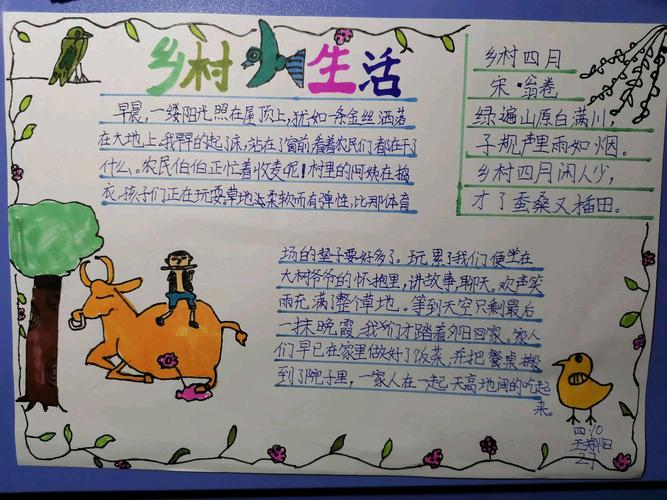 乡村生活
早晨，一缕阳光照在屋顶上，犹如一条金丝洒落
在大地上。我早早的起了床，站在了窗前看着农民们都在干了
什么。农民伯伯正忙着收麦呢！村里的阿姨在摘
衣，孩子们正在玩耍。草地头柔软而有弹性，比那体育
场的垫子要好多了。玩累了我们便坐在
大树爷爷的怀抱里，讲故事，聊天。欢声笑
雨充满了整个草地。等到天空只剩最后
一抹晚霞，我们才踏着夕阳回家。家人
们早已在家里做好了饭菜，并把餐桌搬
到了院子里，一家人在一起天高地阔的吃起
来。
乡村四月
宋·翁卷
绿遍山原白满川，
子规声里雨如烟。
乡村四月闲人少，
才了蚕桑又插田。
四·10
27